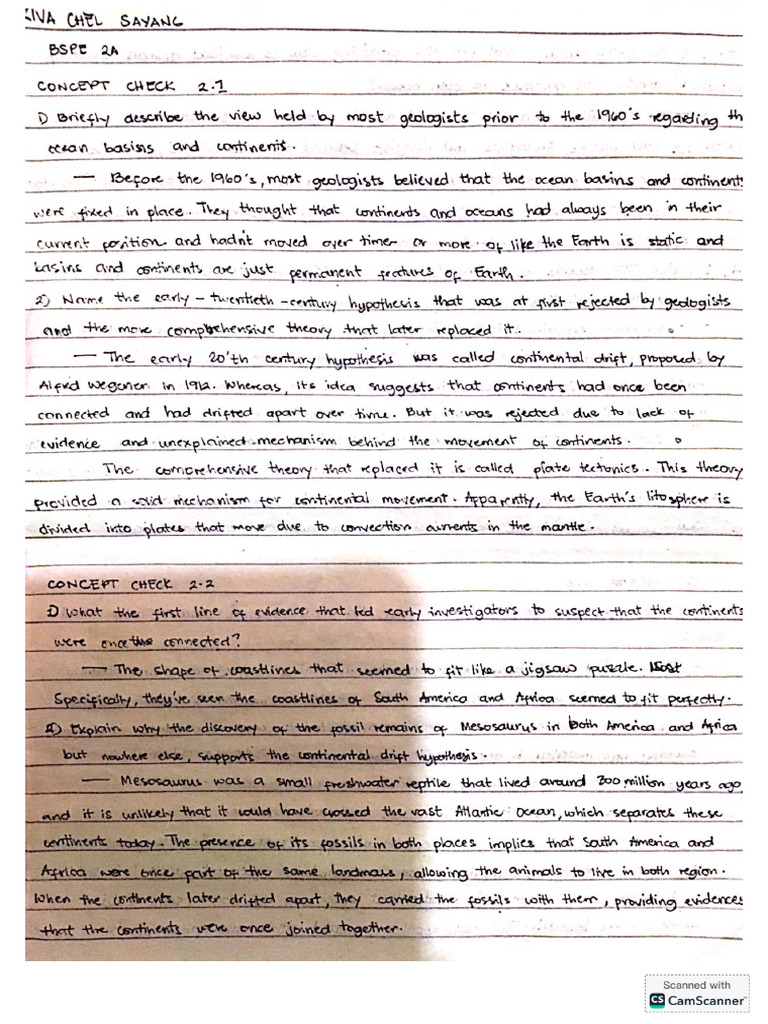 KIVA CHEL SAYANG
BSPE 2A
CONCEPT CHECK 2.1
1) Briefly describe the view held by most geologists prior to the 1960's regarding th
ocean basins and continents.
— Before the 1960's, most geologists believed that the ocean basins and continents
were fixed in place. They thought that continents and oceans had always been in their
current position and hadn't moved over time or more of like the Earth is static and
basins and continents are just permanent features of Earth.
2) Name the early-twentieth-century hypothesis that was at first rejected by geologists
and the more comprehensive theory that later replaced it.
— The early 20'th century hypothesis was called continental drift, proposed by
Alfred Wegener in 1912. Whereas, its idea suggests that continents had once been
connected and had drifted apart over time. But it was rejected due to lack of
evidence and unexplained mechanism behind the movement of continents.
The comprehensive theory that replaced it is called plate tectonics. This theory
provided a solid mechanism for continental movement. Apparently, the Earth's litosphere is
divided into plates that move due to convection currents in the mantle.
CONCEPT CHECK 2.2
1) What the first line of evidence that led early investigators to suspect that the continents
were once connected?
— The shape of coastlines that seemed to fit like a jigsaw puzzle.
Specifically, they've seen the coastlines of South America and Africa seemed to fit perfectly.
2) Explain why the discovery of the fossil remains of Mesosaurus in both America and Africa
but nowhere else, supports the continental drift hypothesis.
— Mesosaurus was a small freshwater reptile that lived around 300 million years ago
and it is unlikely that it could have crossed the vast Atlantic Ocean, which separates these
continents today. The presence of its fossils in both places implies that South America and
Africa were once part of the same landmass, allowing the animals to live in both region.
When the continents later drifted apart, they carried the fossils with them, providing evidences
that the continents were once joined together.
Scanned with
CS CamScanner